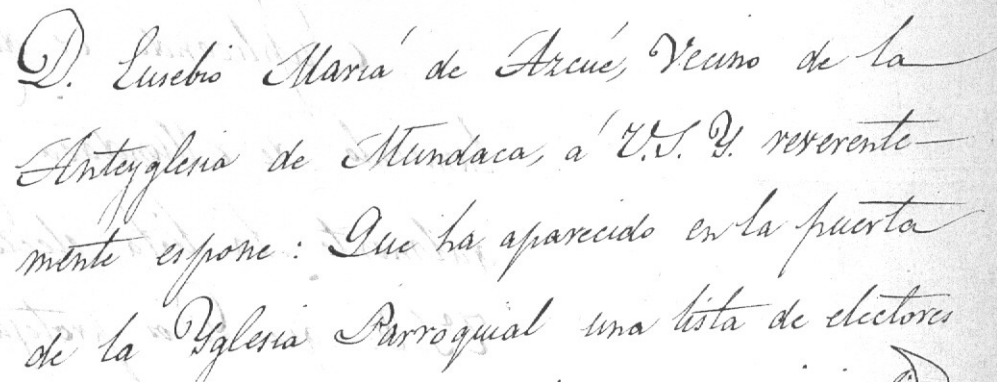 D. Eusebio María de Azcué, Vecino de la
Anteyglesia de Mundaca, á V.S.Y. reverente-
mente espone: Que ha aparecido en la puerta
de la Yglesia Parroquial una lista de electores